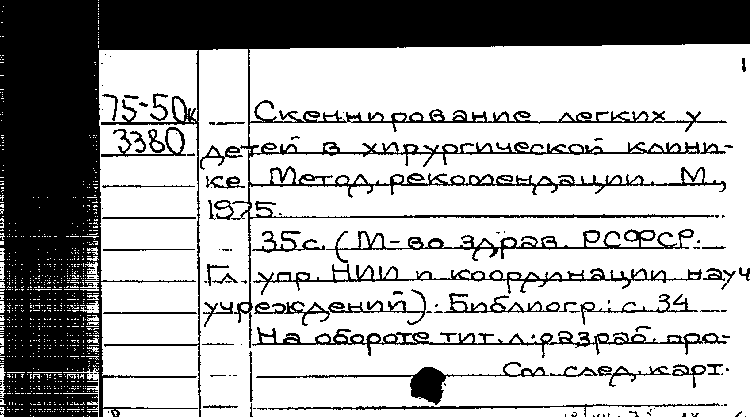 1
75-50к
3380
Сканирование легких у
детей в хирургической клини-
ке. Метод. рекомендации. М.,
1975.
35с. (М-во здрав. РСФСР.
Гл. упр. НИИ и координации науч
учреждений). Библиогр.: с. 34
На обороте тит. л.: разраб. про-
См. след. карт.